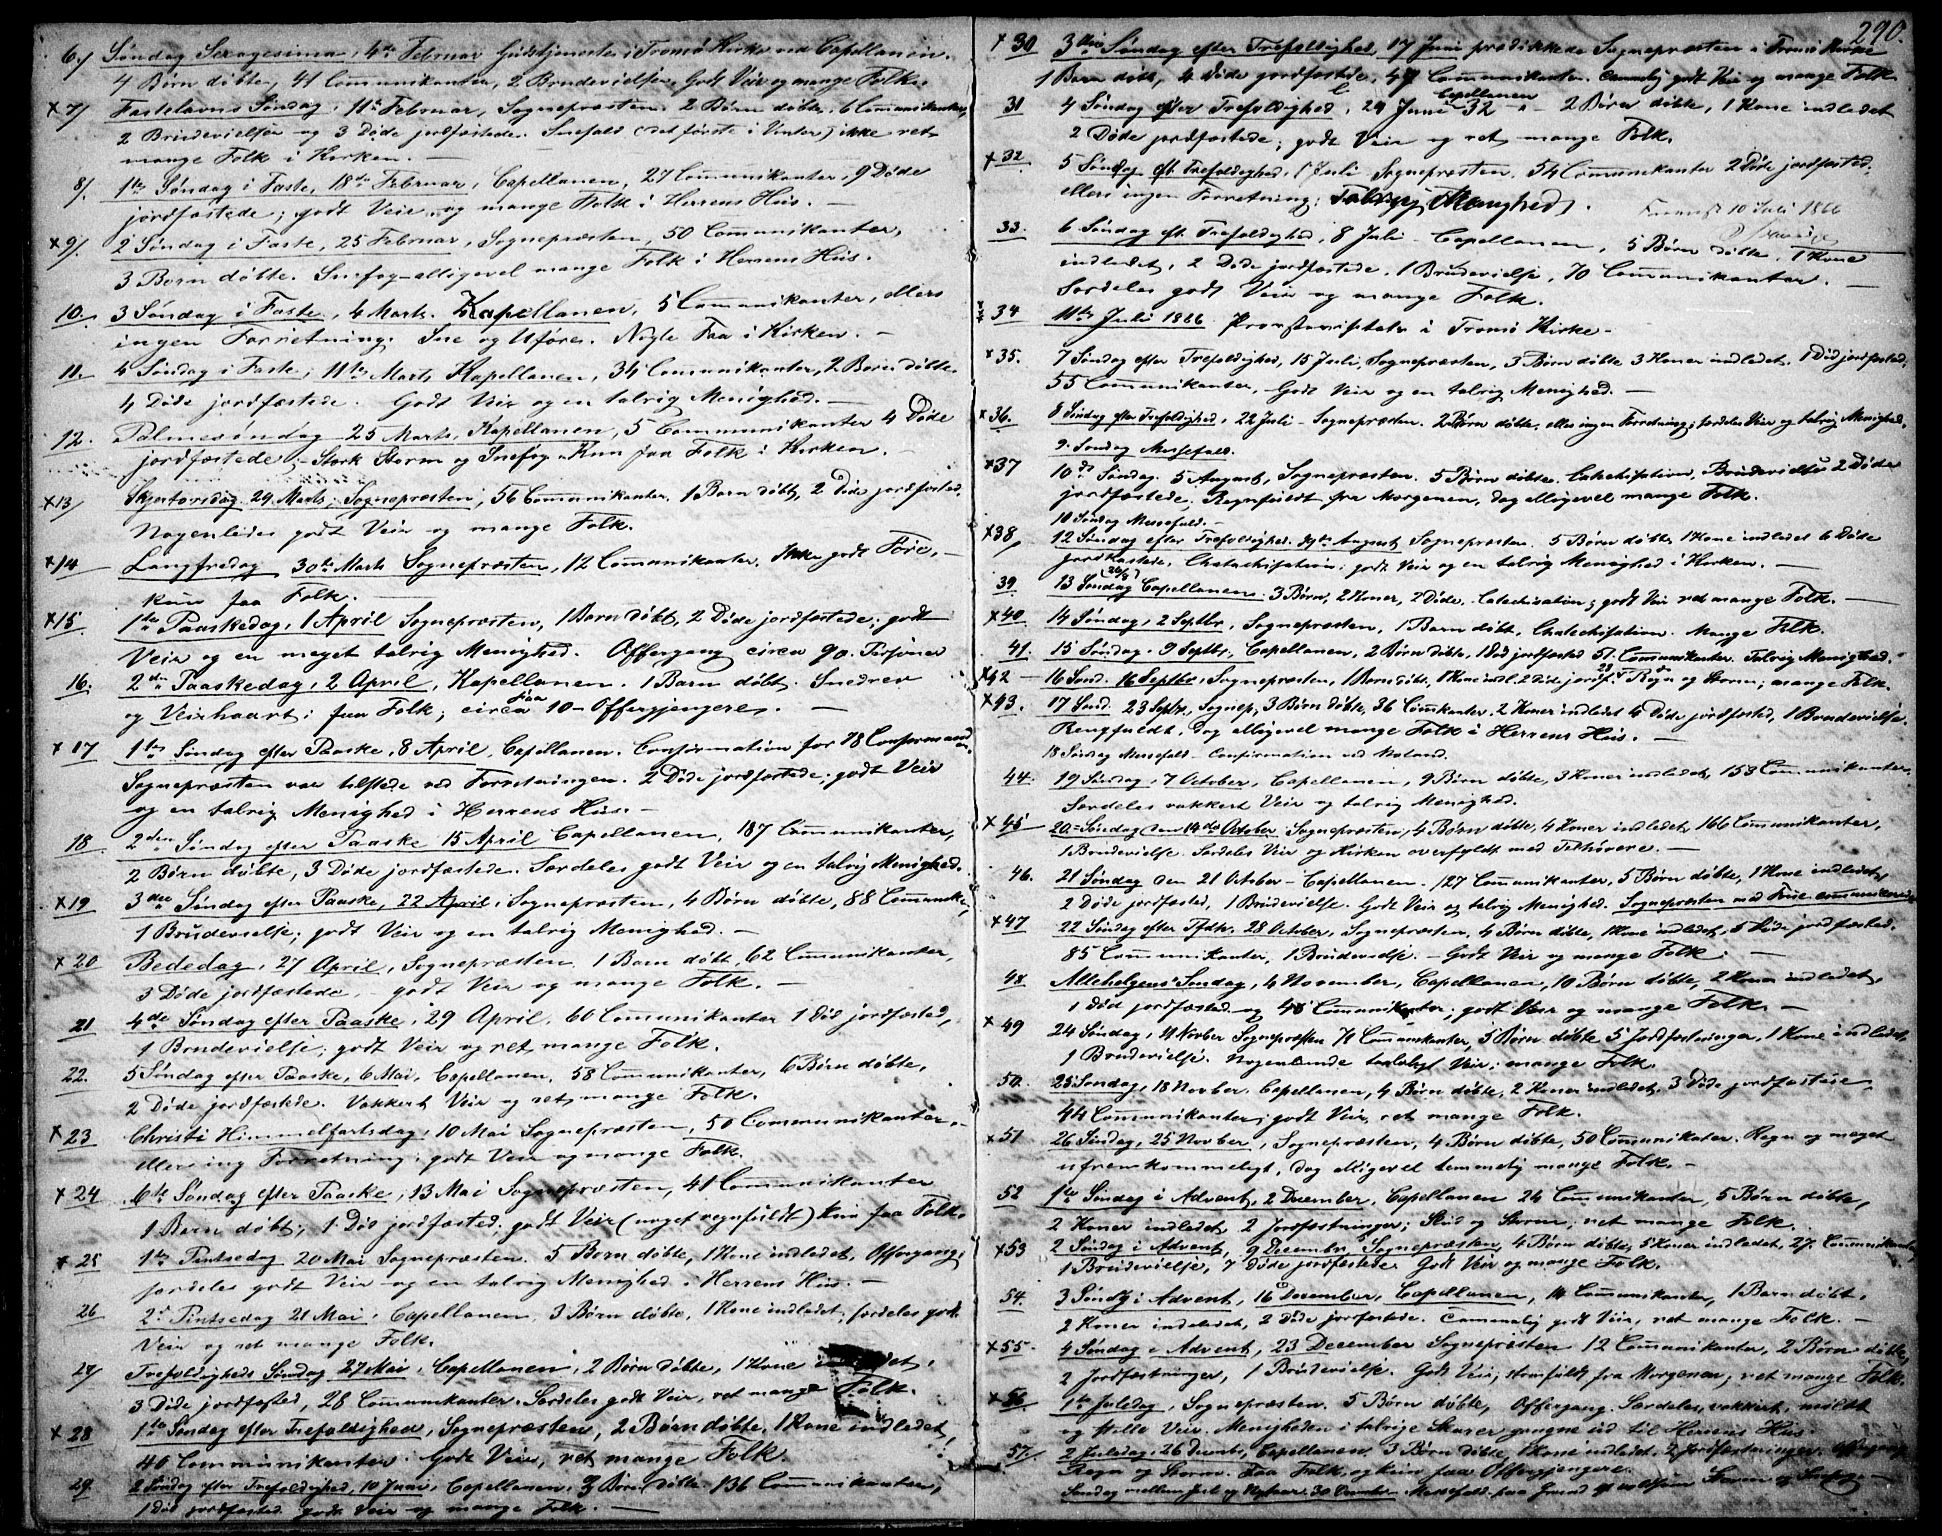 6./ Søndag Sexagesima, 4de Februar Gudstjeneste i Tromsø Kirke ved Capellanen.
4 Børn døbte, 41 Communikanter, 2 Brudevielser. Godt Veir og mange Folk.
x 7/ Fastelavns Søndag, 11te Februar, Sognepræsten. 2 Børn døbte, 6 Communikanter,
2 Brudevielser og 3 Døde jordfæstede. Snefald (det første i Vinter) ikke ret
mange Folk i Kirken. —
8/. 1ste Søndag i Faste, 18de Februar, Capellanen, 27 Communikanter, 9 Døde
jordfæstede; godt Veir og mange Folk i Herrens Hus. —
x 9/. 2 Søndag i Faste, 25 Februar, Sognepræsten, 50 Communikanter,
3 Børn døbte. Snefog alligevel mange Folk i Herrens Hus.
10. 3 Søndag i Faste, 4 Marts. Kapellanen, 5 Communikanter, ellers
ingen Forretning. Sne og Uføre. Nogle Faa i Kirken. —
11. 4 Søndag i Faste, 11te Marts Kapellanen, 34 Communikanter, 2 Børn døbte
4 Døde jordfæstede. Godt Veir og en talrig Menighed. —
12. Palmesøndag 25 Marts, Kapellanen, 5 Communikanter 4 Døde
jordfæstede; Stærk Storm og Snefog. Kun faa Folk i Kirken. —
x13/ Skjærtorsdag 29 Marts, Sognepræsten, 56 Communikanter, 1 Barn døbt, 2 Døde jordfæsted.
Nogenledes godt Veir og mange Folk.
x14 Langfredag 30te Marts Sognepræsten, 12 Communikanter. Ikke godt Føre, —
kun faa Folk. —
x15 1ste Paaskedag, 1 April Sognepræsten, 1 Barn døbt, 2 Døde jordfæstede; godt
Veir og en meget talrig Menighed. Offergang circa 90 Personer
16. 2den Paaskedag, 2 April, Kapellanen. 1 Barn døbt. Snedrev
og Veirhaart; faa Folk; circa 10 Offergjengere. —
x 17 1ste Søndag efter Paaske, 8 April, Capellanen. Confirmation for 78 Confirmander
Sognepræsten var tilstede ved Forretningen. 2 Døde jordfæstede; godt Veir
og en talrig Menighed i Herrens Hus. —
18 2den Søndag efter Paaske 15 April Capellanen, 187 Communikanter,
2 Børn døbte, 3 Døde jordfæstede. Særdeles godt Veir og en talrig Menighed.
x 19 3die Søndag efter Paaske, 22 April, Sognepræsten, 4 Børn døbte, 88 Communik.
1 Brudevielse; godt Veir og en talrig Menighed. —
x 20 Bededag, 27 April, Sognepræsten 1 Barn døbt, 62 Communikanter,
3 Døde jordfæstede, — godt Veir og mange Folk. —
21 4de Søndag efter Paaske, 29 April, 60 Communikanter 1 Død jordfæsted,
1 Brudevielse; godt Veir og ret mange Folk.
22. 5 Søndag efter Paaske, 6 Mai, Capellanen, 58 Communikanter, 6 Børn døbte,
2 Døde jordfæstede. Vakkert Veir og ret mange Folk.
x 23 Christi Himmelfartsdag, 10 Mai Sognepræsten, 50 Communikanter,
ellers ing Forretning; godt Veir og mange Folk.
x 24 6te Søndag efter Paaske, 13 Mai Sognepræsten, 41 Communikanter
1 Barn døbt, 1 Død jordfæsted; godt Veir (noget regnfuldt) kun faa Folk.
x 25 1ste Pintsedag 20 Mai Sognepræsten. 5 Børn døbte, 1 Kone indledet, Offergang;
særdeles godt Veir og en talrig Menighed i Herrens Hus. —
26 2d Pintsedag 21 Mai, Capellanen, 3 Børn døbte, 1 Kone indledet, særdeles godt
Veir og ret mange Folk.
27/ Trefoldigheds Søndag, 27 Mai, Capellanen, 2 Børn døbte, 1 Kone indledet,
3 Døde jordfæsted, 28 Communikanter. Særdeles godt Veir, ret mange Folk.
x 28 1ste Søndag efter Trefoldighed, Sognepræsten, 2 Børn døbte, 1 Kone indledet,
40 Communikanter. Godt Veir, ret mange Folk.
29. 2 Søndag efter Trefoldighed, 10 Juni, Capellanen. 3 Børn døbte. 136 Communikanter,
1 Død jordfæsted godt Veir og mange Folk. —
290.
x 30 3die Søndag efter Trefoldighed, 17 Juni prædikkede Sognepræsten i Tromsø Kirke
1 Barn døbt, 4 Døde jordfæstede, 47 Communikanter. Temmelig godt Veir og mange Folk
31 4 Søndag efter Trefoldighed, 24 Juni Capellanen 32 " 2 Børn døbte, 1 Kone indledet
2 Døde jordfæstede; godt Veir og ret mange Folk.
x 32. 5 Søndag eft. Trefoldighed, 1 Juli Sognepræsten, 54 Communikanter 2 Døde jordfæsted,
ellers ingen Forretning; Talrig Menighed.
10 Juli 1866
33. 6 Søndag eft. Trefoldighed, 8 Juli — Capellanen, 5 Børn døbte, 1 Kone
indledet, 2 Døde jordfæstede, 1 Brudevielse, 70 Communikanter.
Særdeles godt Veir og mange Folk. —
34 11te Juli 1866 Provstevisitats i Tromsø Kirke —
x 35. 7 Søndag efter Trefoldighed, 15 Juli, Sognepræsten, 3 Børn døbte 3 Koner indledet, 1 Død jordfæsted,
55 Communikanter, Godt Veir og en talrig Menighed. —
x 36. 8 Søndag efter Trefoldighed, 22 Juli — Sognepræsten. 2 Børn døbte, ellers ingen Forretning; særdeles Veir og talrig Menighed.
9. Søndag Messefald.
x37 10de Søndag 5 August, Sognepræsten. 5 Børn døbte. Catechisation, Brudevielse 2 Døde
jordfæstede, Regnfuldt fra Morgenen, dog alligevel mange Folk.
10 Søndag Messefald. —
x38/ 12 Søndag efter Trefoldighed. 19te August, Sognepræsten. 5 Børn døbte 1 Kone indledet 6 Døde
jordfæstede, Chatechisation; godt Veir og en talrig Menighed i Kirken. —
39. 13 Søndag 26/8 Capellanen 3 Børn, 2 Koner, 2 Døde. Catechisation; godt Veir ret mange Folk. —
x40 14 Søndag, 2 Septbr, Sognepræsten, 1 Barn døbt, Chatechisation. Mange Folk.
41. 15 Søndag. 9 Septbr, Capellanen, 2 Børn døbte, 1 Død jordfæsted 51 Communikanter. Talrig Menighed.
x42 — 16 Sønd. 16 Septbr, Sognepræsten, 1 Barn døbt, 1 Kone indl. 2 Døde jordf. Regn og Storm; mange Folk.
x43. 17 Sønd. 23 Septr, Sognep, 3 Børn døbte, 36 Commkanter, 2 Koner indledet 4 Døde jordfæsted, 1 Brudevielse.
Rengfuldt, dog alligevel mange Folk i Herrens Hus. —
18 Søndag Messefald — Confirmation ved
44. 19 Søndag, 7 October, Capellanen, 9 Børn døbte, 3 Koner indledet, 153 Communikanter,
Særdeles vakkert Veir og talrig Menighed.
x 45 20. Søndag den 14de October Sognepræsten, 4 Børn døbte, 4 Koner indledet, 166 Communikanter,
1 Brudevielse. Særdeles Veir og Kirken overfyldt med Tilhørere. —
46. 21 Søndag den 21 October — Capellanen. 127 Communikanter, 5 Børn døbte, 1 Kone indledet,
2 Døde jordfæsted, 1 Brudevielse. Godt Veir og talrig Menighed. Sognepræsten med Frue communicerede
x47 22 Søndag efter Trfdh. 28 October, Sognepræsten, 4 Børn døbte, 1 Kone indledet, 5 Døde jordfæsted.
85 Communikanter, 1 Brudevielse. — Godt Veir og mange Folk. —
48. Allehelgens Søndag, 4 November, Capellanen, 10 Børn døbte, 2 Koner indledet,
1 Død jordfæsted og 48 Communikanter; godt Veir og mange Folk. —
x 49 24 Søndag, 11 Novber Sognepræsten 71 Communikanter, 3 Børn døbte 5 Jordfæstninger, 1 Kone indledet,
1 Brudevielse. Nogenlunde taaleligt Veir; mange Folk.
50. 25 Søndag, 18 Novber. Capellanen, 4 Børn døbte, 2 Koner indledet, 3 Døde jordfæstede,
44 Communikanter; godt Veir, ret mange Folk.
x 51 26 Søndag, 25 Novber, Sognepræsten, 4 Børn døbte, 50 Communikater. Regn og meget
ufremkommeligt, dog alligevel temmelig mange Folk. —
52 1ste Søndag i Advent, 2 December, Capellanen 26 Communikanter, 5 Børn døbte,
2 Koner indledet, 2 Jordfæstninger; Slud og Storm; ret mange Folk.
x53 2 Søndag i Advent, 9 December Sognepræsten, 4 Børn døbte, 5 Koner indledet, 27 Communikanter,
1 Brudevielse, 7 Døde jordfæstede Godt Veir og mange Folk.
54. 3 Søndag i Advent, 16 December, Capellanen, 14 Communikanter, 1 Barn døbt,
2 Koner indledet, 2 Døde jordfæstede. Temmelig godt Veir, ret mange Folk. —
x55 4 Søndag i Advent, 23 December Sognepræsten 12 Communikanter, 2 Børn døbte,
2 Jordfæstninger, 1 Brudevielse. Godt Veir; fra Morgenen; ret mange Folk.
x 56 1ste Juledag, Sognepræsten. 5 Børn døbte, Offergang. Særdeles vakkert, mildt
og stille Veir. Menigheden i talrige Skarer gangne ind til Herrens Hus.
57/ 2 Juledag, 26 Decembr, Capellanen 3 Børn døbte, 1 Kone indledet, 2 Jordfæstninger. Offergang
Regn og Storm. Faa Folk, og kun faa Offergjengere.
Søndag mellem Jul og Nytaar 30 December Messefald paa Grund af voldsom Storm og Snefog —